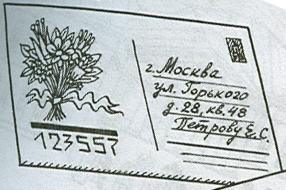 г. Москва
ул. Горького
д. 28, кв. 48
Петрову Е. С.
123557